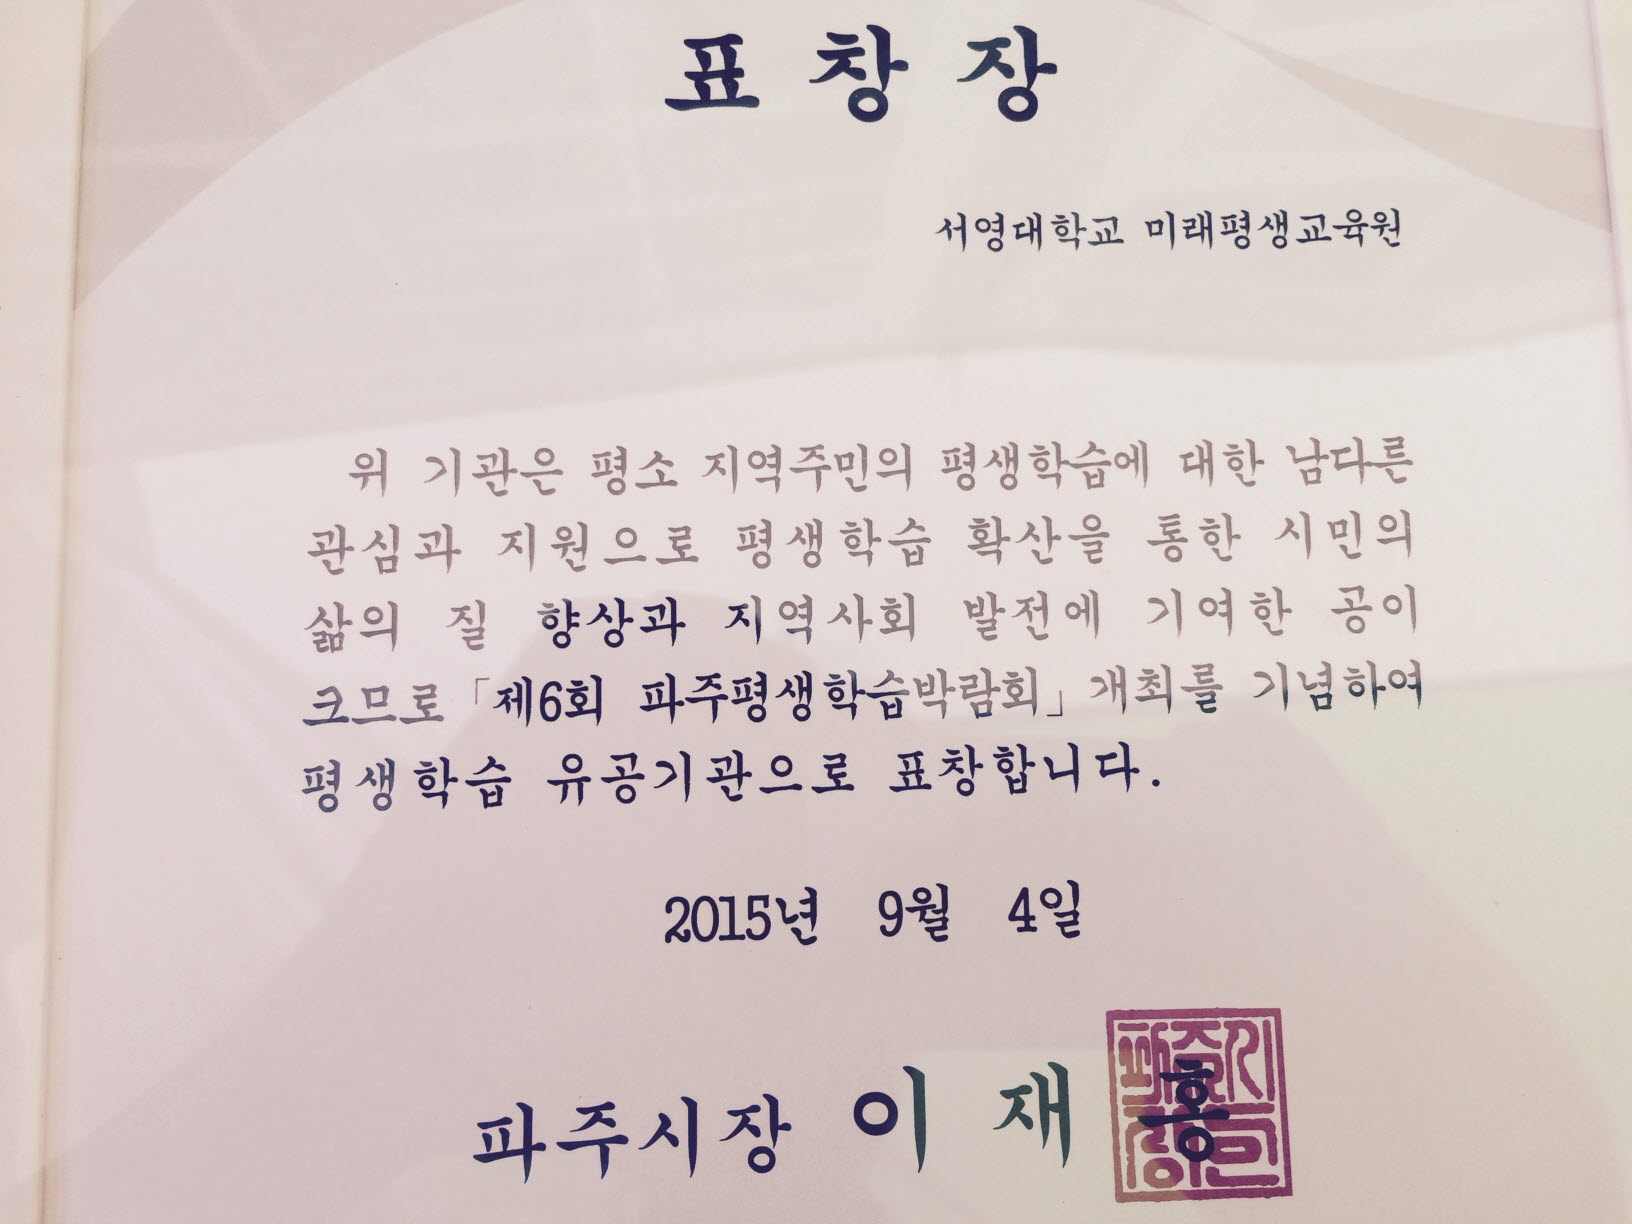 표 창 장
서영대학교 미래평생교육원
위 기관은 평소 지역주민의 평생학습에 대한 남다른
관심과 지원으로 평생학습 확산을 통한 시민의
삶의 질 향상과 지역사회 발전에 기여한 공이
크므로 「제6회 파주평생학습박람회」 개최를 기념하여
평생학습 유공기관으로 표창합니다.
2015년 9월 4일
파주시장 이 재 홍